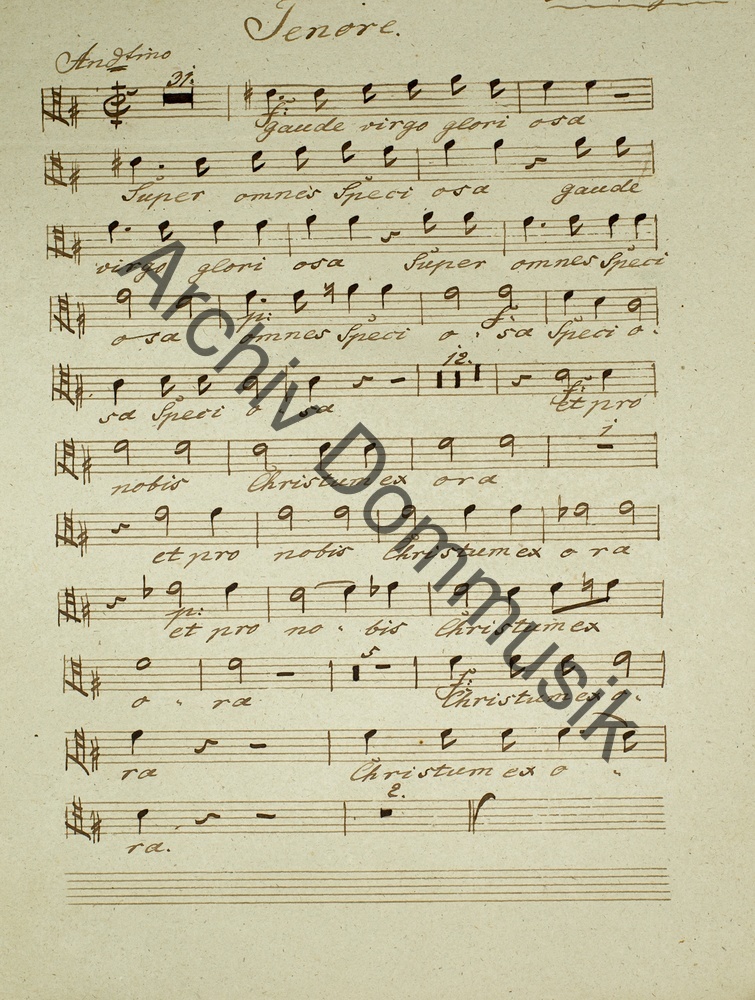 Tenore.
Andtino
31.
f:
gaude virgo glori osa
Super omnes Speci osa gaude
virgo glori osa Super omnes Speci
p: f:
o sa omnes Speci o - sa Speci o -
12.
f:
sa Speci o sa et pro
1
nobis Christum ex ora
et pro nobis Christum ex o ra
p:
et pro no - bis Christum ex
5
f:
o - ra Christum ex o -
ra Christum ex o -
2.
ra.
Archiv Dommusik